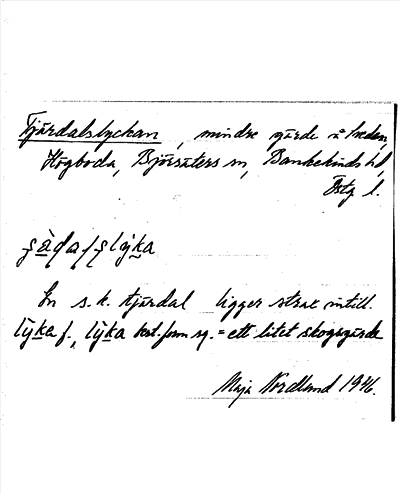 Tjärdalslyckan, mindre gärde å Insden,
Högboda, Björsäters sn, Bankekinds hd,
Östg. l.
En s.k. tjärdal ligger strax intill.
lyka f., lyka best. form sg. = ett litet skogsgärde
Maja Nordlund 1946.